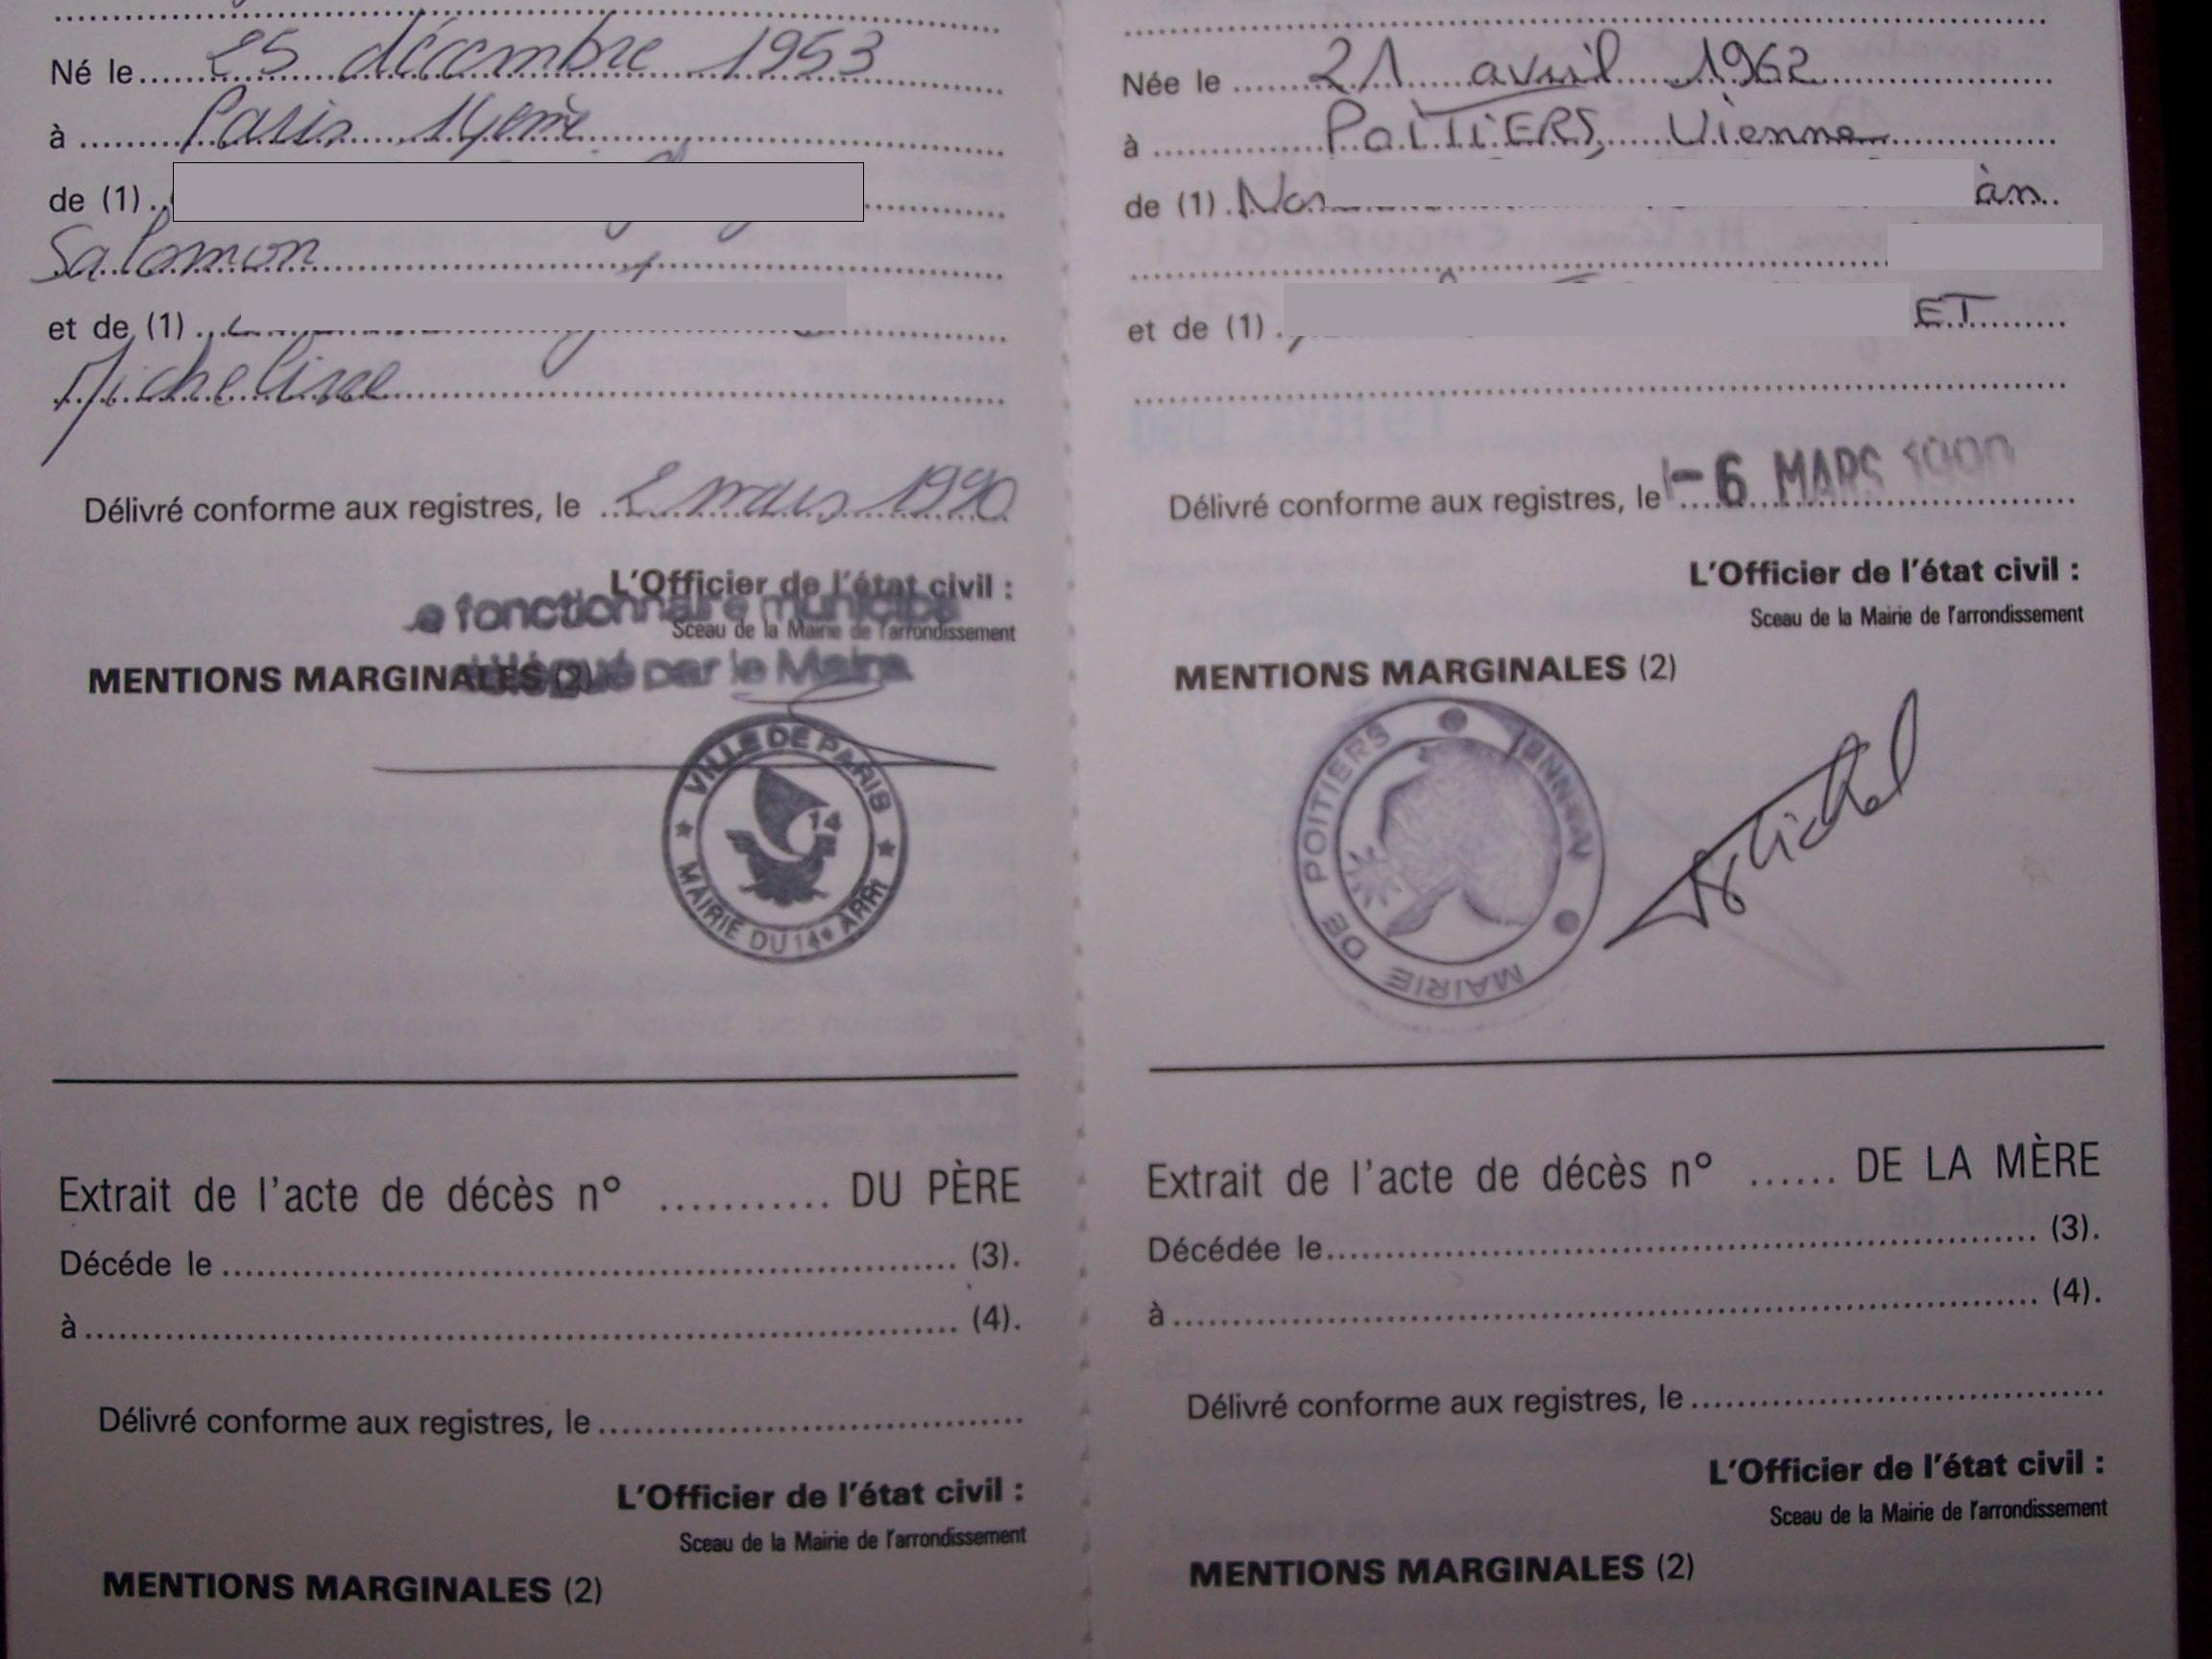 Né le 25 décembre 1953
à Paris 14eme
de (1)
Salomon
et de (1)
Micheline
Délivré conforme aux registres, le 2 mars 1990
L'Officier de l'état civil :
fonctionnaire municipal
Sceau de la Mairie de l'arrondissement
MENTIONS MARGINALES (2)
par le Maire
VILLE DE PARIS
14
MAIRIE DU 14e ARRt
Extrait de l'acte de décès n° ........... DU PÈRE
Décéde le (3).
à (4).
Délivré conforme aux registres, le
L'Officier de l'état civil :
Sceau de la Mairie de l'arrondissement
MENTIONS MARGINALES (2)
Née le 21 avril 1962
à POITIERS, Vienne
de (1)
et de (1) ET
Délivré conforme aux registres, le -6 MARS 1990
L'Officier de l'état civil :
Sceau de la Mairie de l'arrondissement
MENTIONS MARGINALES (2)
MAIRIE DE POITIERS
Extrait de l'acte de décès n° ...... DE LA MÈRE
Décédée le (3).
à (4).
Délivré conforme aux registres, le
L'Officier de l'état civil :
Sceau de la Mairie de l'arrondissement
MENTIONS MARGINALES (2)